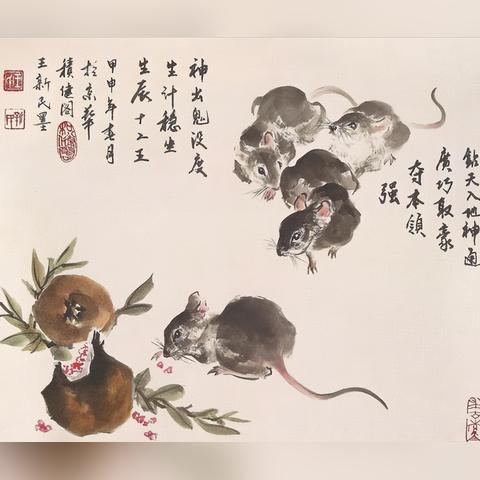 鉆天入地神通
廣巧取豪
夺本領
强
神出鬼没度
生計穩坐
生辰十二王
甲申年春月
於京華
積健阁
王新民墨